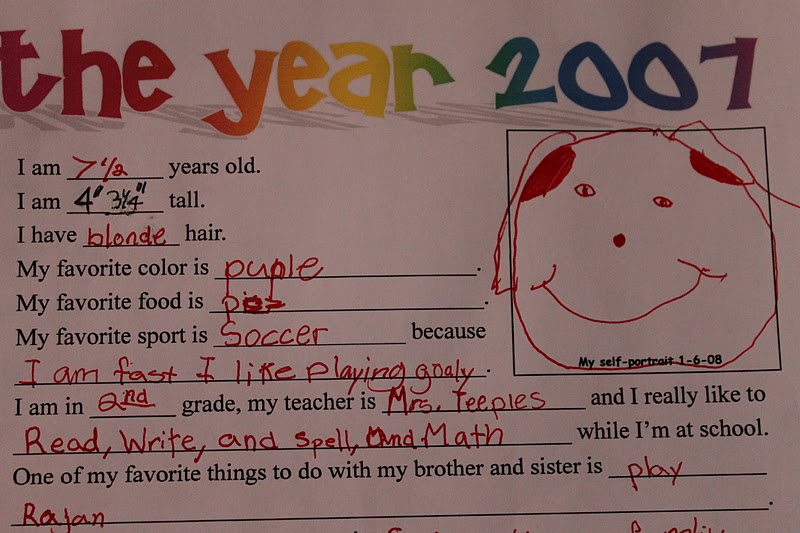 the year 2007
I am 7 1/2 years old.
I am 4" 3 1/4" tall.
I have blonde hair.
My favorite color is puple.
My favorite food is .
My favorite sport is Soccer because
I am fast I like playing goaly.
I am in 2nd grade, my teacher is Mrs. Teeples and I really like to
Read, Write, and spell, and Math while I'm at school.
One of my favorite things to do with my brother and sister is play
Rajan.
My self-portrait 1-6-08